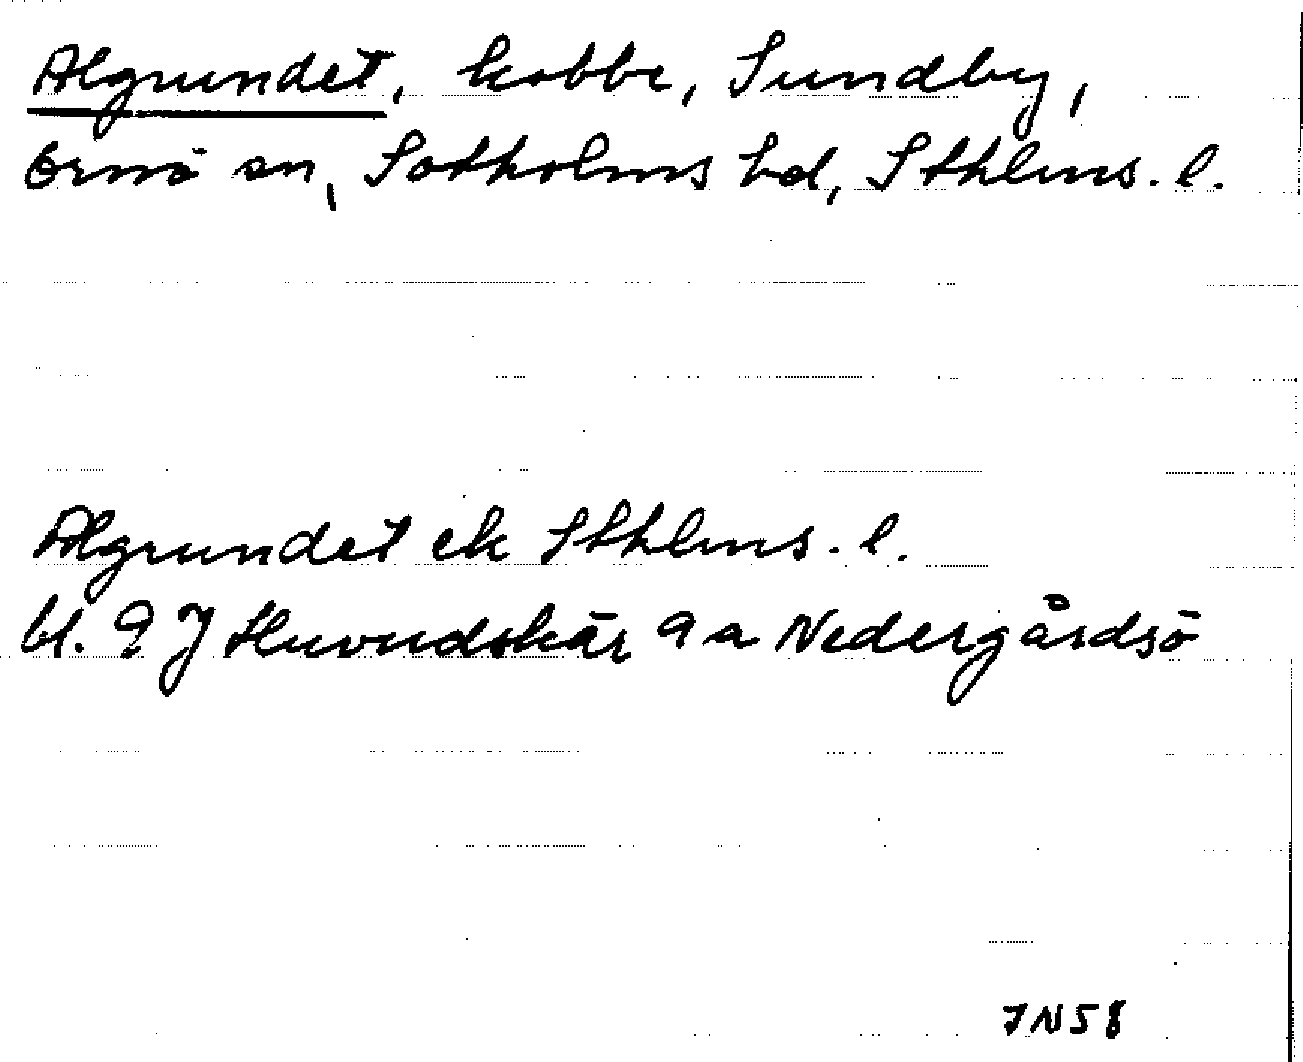 Algrundet, kobbe, Sundby,
Ornö sn, Sotholms hd, Sthlms. l.
Algrundet ek Sthlms. l.
bl. 9 J Huvudskär 9 a Nedergårdsö
JN58